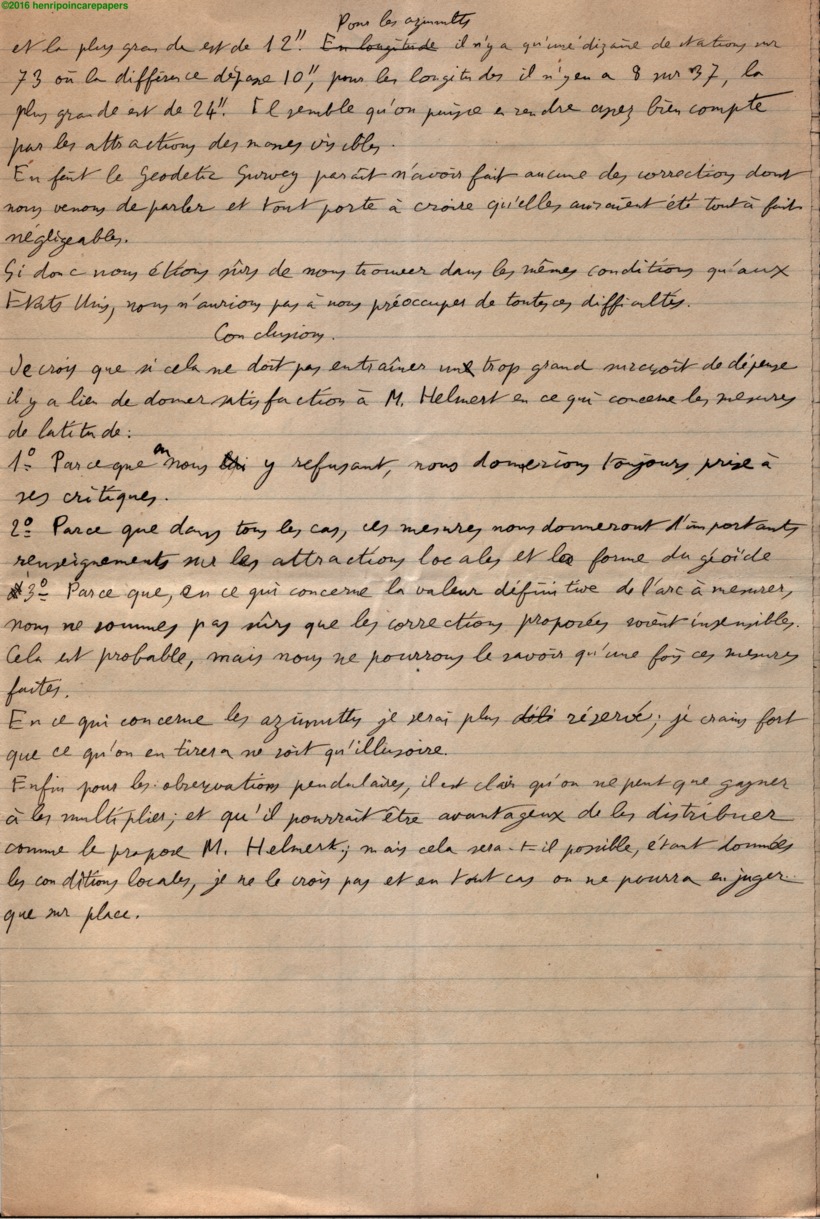 ©2016 henripoincarepapers
Pour les azimutts
et la plus grande est de 12". En longitude il n'y a qu'une dizaine de stations sur
73 où la différence dépasse 10", pour les longitudes il n'y en a 8 sur 37, la
plus grande est de 24". Il semble qu'on puisse en rendre assez bien compte
par les attractions des masses visibles.
En fait le Geodetic Survey paraît n'avoir fait aucune des corrections dont
nous venons de parler et tout porte à croire qu'elles auraient été tout à fait
négligeables.
Si donc nous étions sûrs de nous trouver dans les mêmes conditions qu'aux
Etats Unis, nous n'aurions pas à nous préoccuper de toutes ces difficultés.
Conclusions.
Je crois que si cela ne doit pas entraîner un trop grand surcroît de dépense
il y a lieu de donner satisfaction à M. Helmert en ce qui concerne les mesures
de latitude:
1º Parce que en nous y refusant, nous donnerions toujours prise à
ses critiques.
2º Parce que dans tous les cas, ces mesures nous donneront d'importants
renseignements sur les attractions locales et la forme du géoïde
3º Parce que, en ce qui concerne la valeur définitive de l'arc à mesurer,
nous ne sommes pas sûrs que les corrections proposées soient insensibles.
Cela est probable, mais nous ne pourrons le savoir qu'une fois ces mesures
faites.
En ce qui concerne les azimutts je serai plus réservé; je crains fort
que ce qu'on en tirera ne soit qu'illusoire.
Enfin pour les observations pendulaires, il est clair qu'on ne peut que gagner
à les multiplier; et qu'il pourrait être avantageux de les distribuer
comme le propose M. Helmert; mais cela sera-t-il possible, étant données
les conditions locales, je ne le crois pas et en tout cas on ne pourra en juger
que sur place.